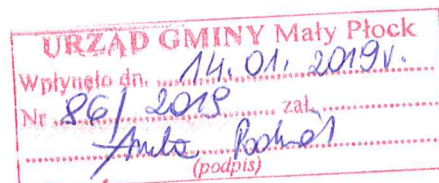 URZĄD GMINY Mały Płock
Wpłynęło dn. 14.01.2019r.
Nr 86/2019 zał.
Aneta
(podpis)